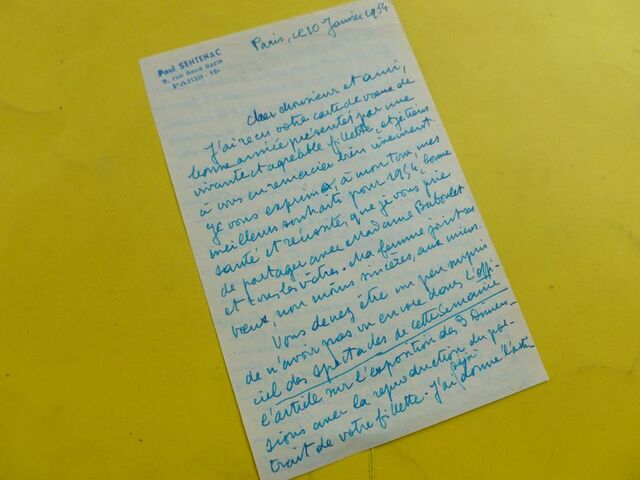 Paul SENTENAC
9, rue René Bazin
PARIS-16e
Paris, le 10 Janvier 1954
Cher Monsieur et ami,
J'ai reçu votre carte de vœux de
bonne année présentés par une
vivante et agréable fillette, et je tiens
à vous en remercier très vivement.
Je vous exprime, à mon tour, mes
meilleurs souhaits pour 1954, bonne
santé et réussite, que je vous prie
de partager avec Madame Baboulet
et tous les vôtres. Ma femme joint ses
vœux, non moins sincères, aux miens.
Vous devez être un peu surpris
de n'avoir pas vu encore dans l'Offi-
ciel des Spectacles de cette Semaine
l'article sur l'exposition des 3 Dimen-
sions avec la reproduction du por-
trait de votre fillette. J'ai déjà donné l'arti-